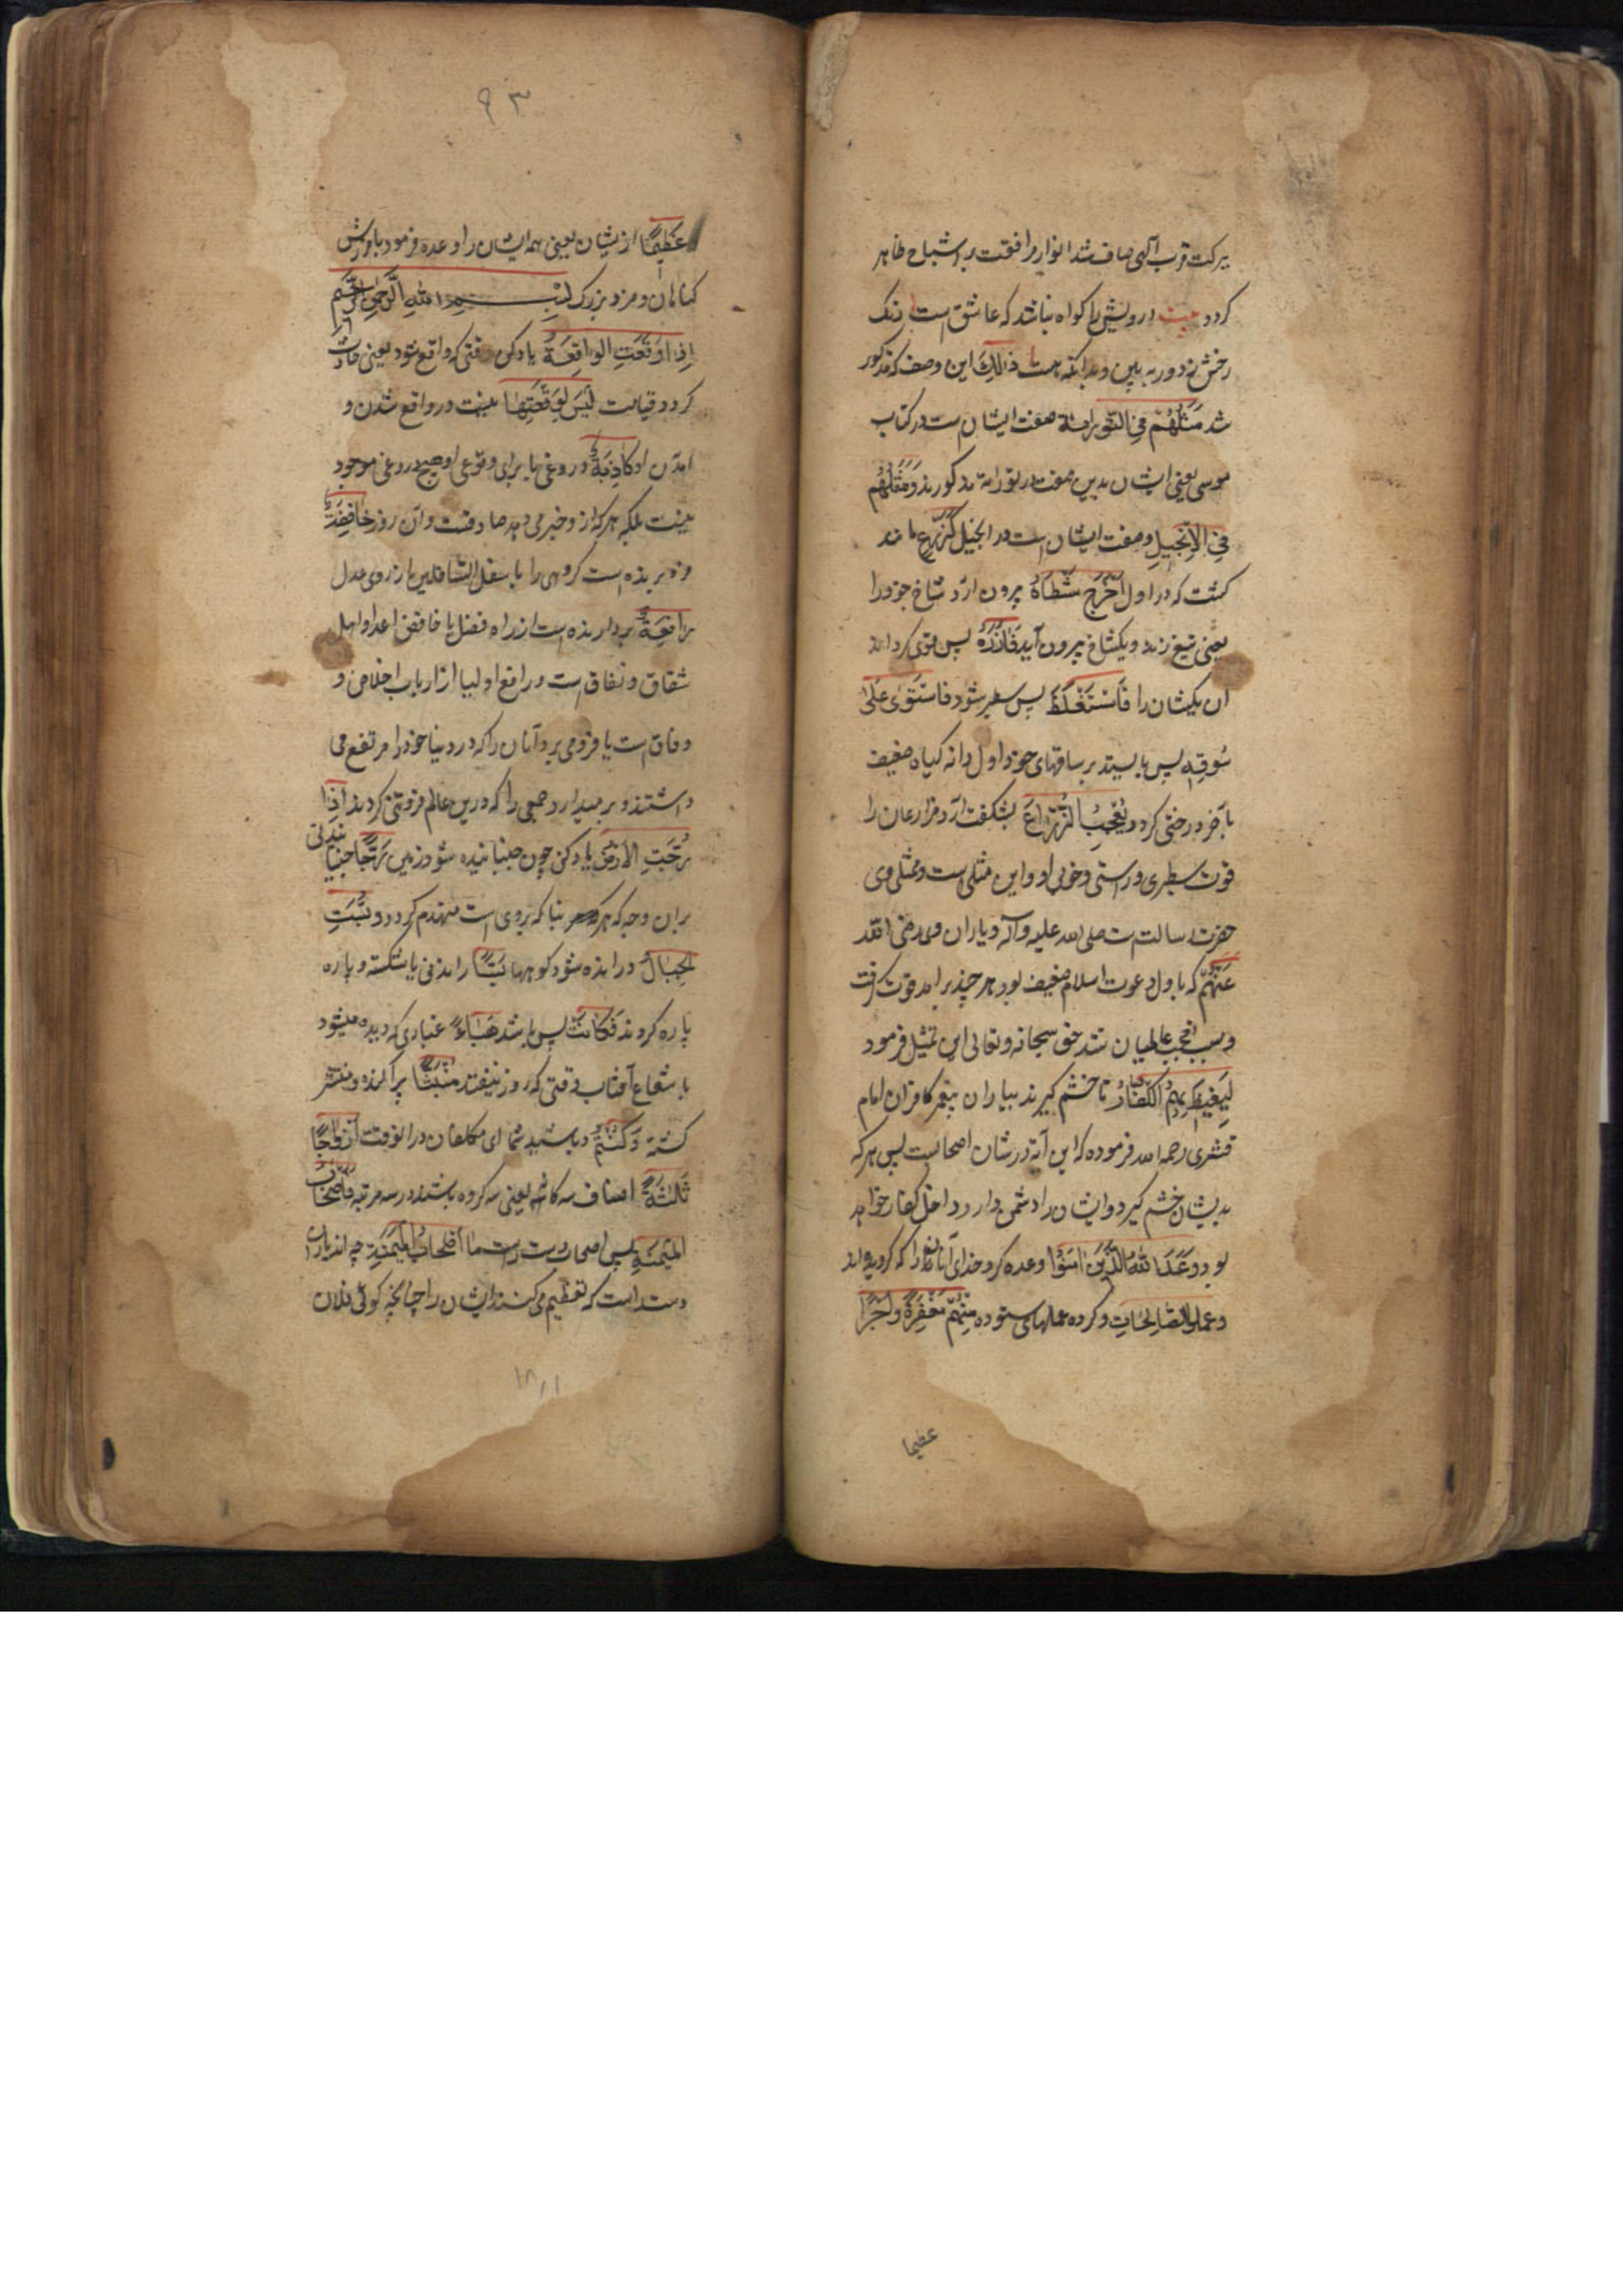 ببرکت قرب آلهی صاف شد انوار موافقت بر اشباح ظاهر
کردد بیت درویش را کواه نباشد که عاشق است رنک
رخش ز دور به بین و بدانکه هست ذٰلِكَ این وصف که مذکور
شد مَثَلُهُمْ فِی التَّوْرٰیةِ صفت ایشان است در کتاب
موسی یعنی ایشان بدین صفت در توراة مذکورند وَمَثَلُهُمْ
فِی الْاِنْجِیلِ وصفت ایشان است در انجیل کَزَرْعٍ مانند
کشت که در اول اَخْرَجَ شَطْاَهُ بیرون ارد شاخ خود را
یعنی تیغ زند و یکشاخ بیرون آید فَاٰزَرَهُ پس قوی کرداند
آن یکشاخ را فَاسْتَغْلَظَ پس سطبر شود فَاسْتَوٰی عَلٰی
سُوقِهٖ پس بایستد بر ساقهای خود اول دانه کیاه ضعیف
بآخر درختی کردد یُعْجِبُ الزُّرَّاعَ بشکفت آرد مزارعان را
قوت سطبری و راستی و خوبی او و این مثلی است و ممثل وی
حضرت رسالت است صلی الله علیه و آله و یاران وی رضی الله
عَنْهُمْ که باول دعوت اسلام ضعیف بود هر چند برامد قوت کرفت
و سبب تعجب عالمیان شد حق سبحانه و تعالی این تمثیل فرمود
لِیَغِیظَ بِهِمُ الْکُفَّارَ تا خشم کیرند بیاران پیغمبر کافران امام
قشیری رحمه الله فرموده که این آیة در شان اصحابست پس هر که
بدیشان خشم کیرد و ایشان را دشمن دارد داخل کفار خواهد
بود وَعَدَ اللّٰهُ الَّذِینَ اٰمَنُوا وعده کرد خدای تعالی آنانرا که کرویده اند
وعملوا الصَّالِحَاتِ و کرده عملهای ستوده مِنْهُمْ مَغْفِرَةً وَاَجْرًا
عظیما
۹۳
عَظِیمًا از یشان یعنی همه ایشان را وعده فرمود بآمرزش
کناهان و مزد بزرک بِسْمِ اللّٰهِ الرَّحْمٰنِ الرَّحِیمِ
اِذَا وَقَعَتِ الْوَاقِعَةُ یاد کن وقتی که واقع شود یعنی حادث
کردد قیامت لَیْسَ لِوَقْعَتِهَا نیست در واقع شدن و
امدن او کَاذِبَةٌ دروغی یا برای وقوعی او هیچ دروغی موجود
نیست بلکه هر که از و خبر می دهد صادقست و آن روز خَافِضَةٌ
فرو برنده است کروهی را با سفل السافلین از روی عدل
رَافِعَةٌ بردارنده است از راه فضل یا خافض اعدا و اهل
شقاق و نفاق است و رافع اولیا از ارباب اخلاص و
وفاق است یا فرو می برد آنان را که در دنیا خود را مرتفع می
داشتند و بر میدارد جمعی را که درین عالم فروتنی کردند اِذَا
رُجَّتِ الْاَرْضُ یاد کن چون جنبانیده شود زمین رَجًّا جنبانیدنی
بران وجه که هر بنا که بروی است منهدم کردد وَبُسَّتِ
الْجِبَالُ و رانده شود کوهها بَسًّا راندنی یا شکسته و پاره
پاره کردند فَکَانَتْ پس باشد هَبَاءً غباری که دیده میشود
با شعاع آفتاب وقتی که روز نیفتد مُنْبَثًّا پراکنده و منتشر
کشته وَکُنْتُمْ و باشید شما ای مکلفان در انوقت اَزْوَاجًا
ثَلٰثَةً اصناف سه کانه یعنی سه کروه باشند در سه مرتبه فَاَصْحَابُ
الْمَیْمَنَةِ پس اصحاب دست راست مَا اَصْحَابُ الْمَیْمَنَةِ چه اند یاران
دست راست که تعظیم می کنند ایشان را چنانچه کوئی فلان